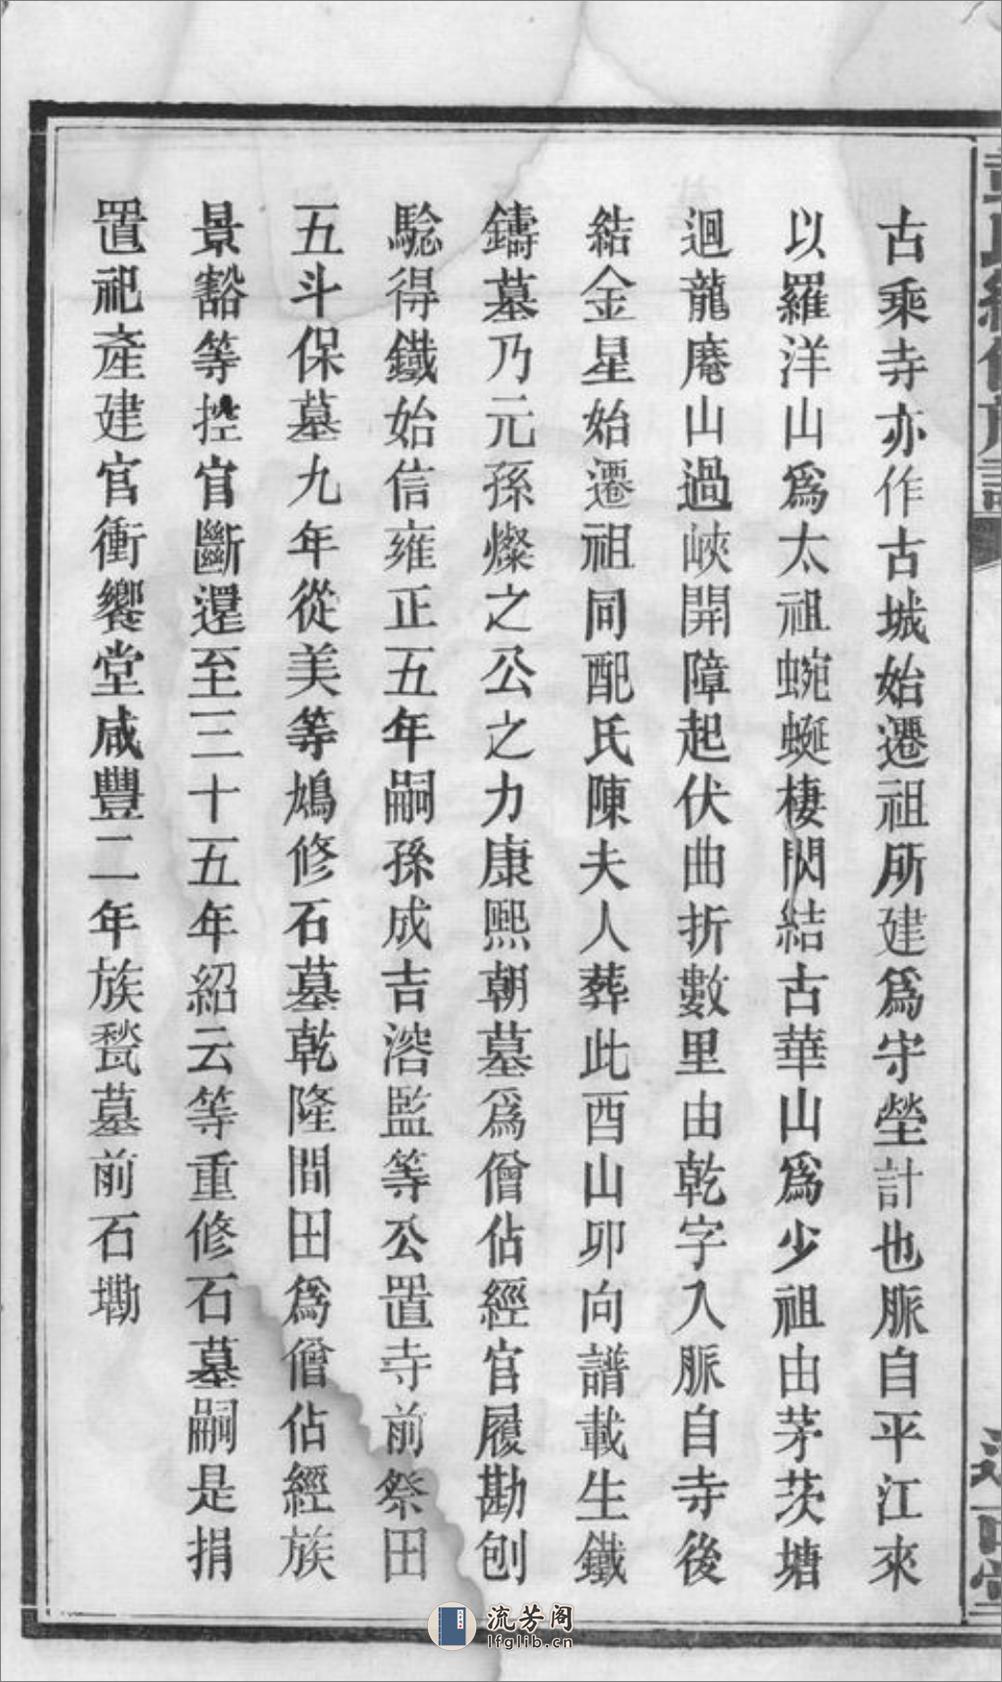 古乘寺亦作古城始遷祖所建爲守塋計也脈自平江來
以羅洋山爲太祖蜿蜒棲閃結古華山爲少祖由茅茨塘
迴龍庵山過峽開障起伏曲折數里由乾字入脈自寺後
結金星始遷祖同配氏陳夫人葬此酉山卯向譜載生鐵
鑄墓乃元孫燦之公之力康熙朝墓爲僧佔經官履勘刨
騐得鐵始信雍正五年嗣孫成吉溶監等公置寺前祭田
五斗保墓九年從美等鳩修石墓乾隆間田爲僧佔經族
景豁等控官斷還至三十五年紹云等重修石墓嗣是捐
置祀產建官衝饗堂咸豐二年族甃墓前石墈
流芳阁
lfglib.cn